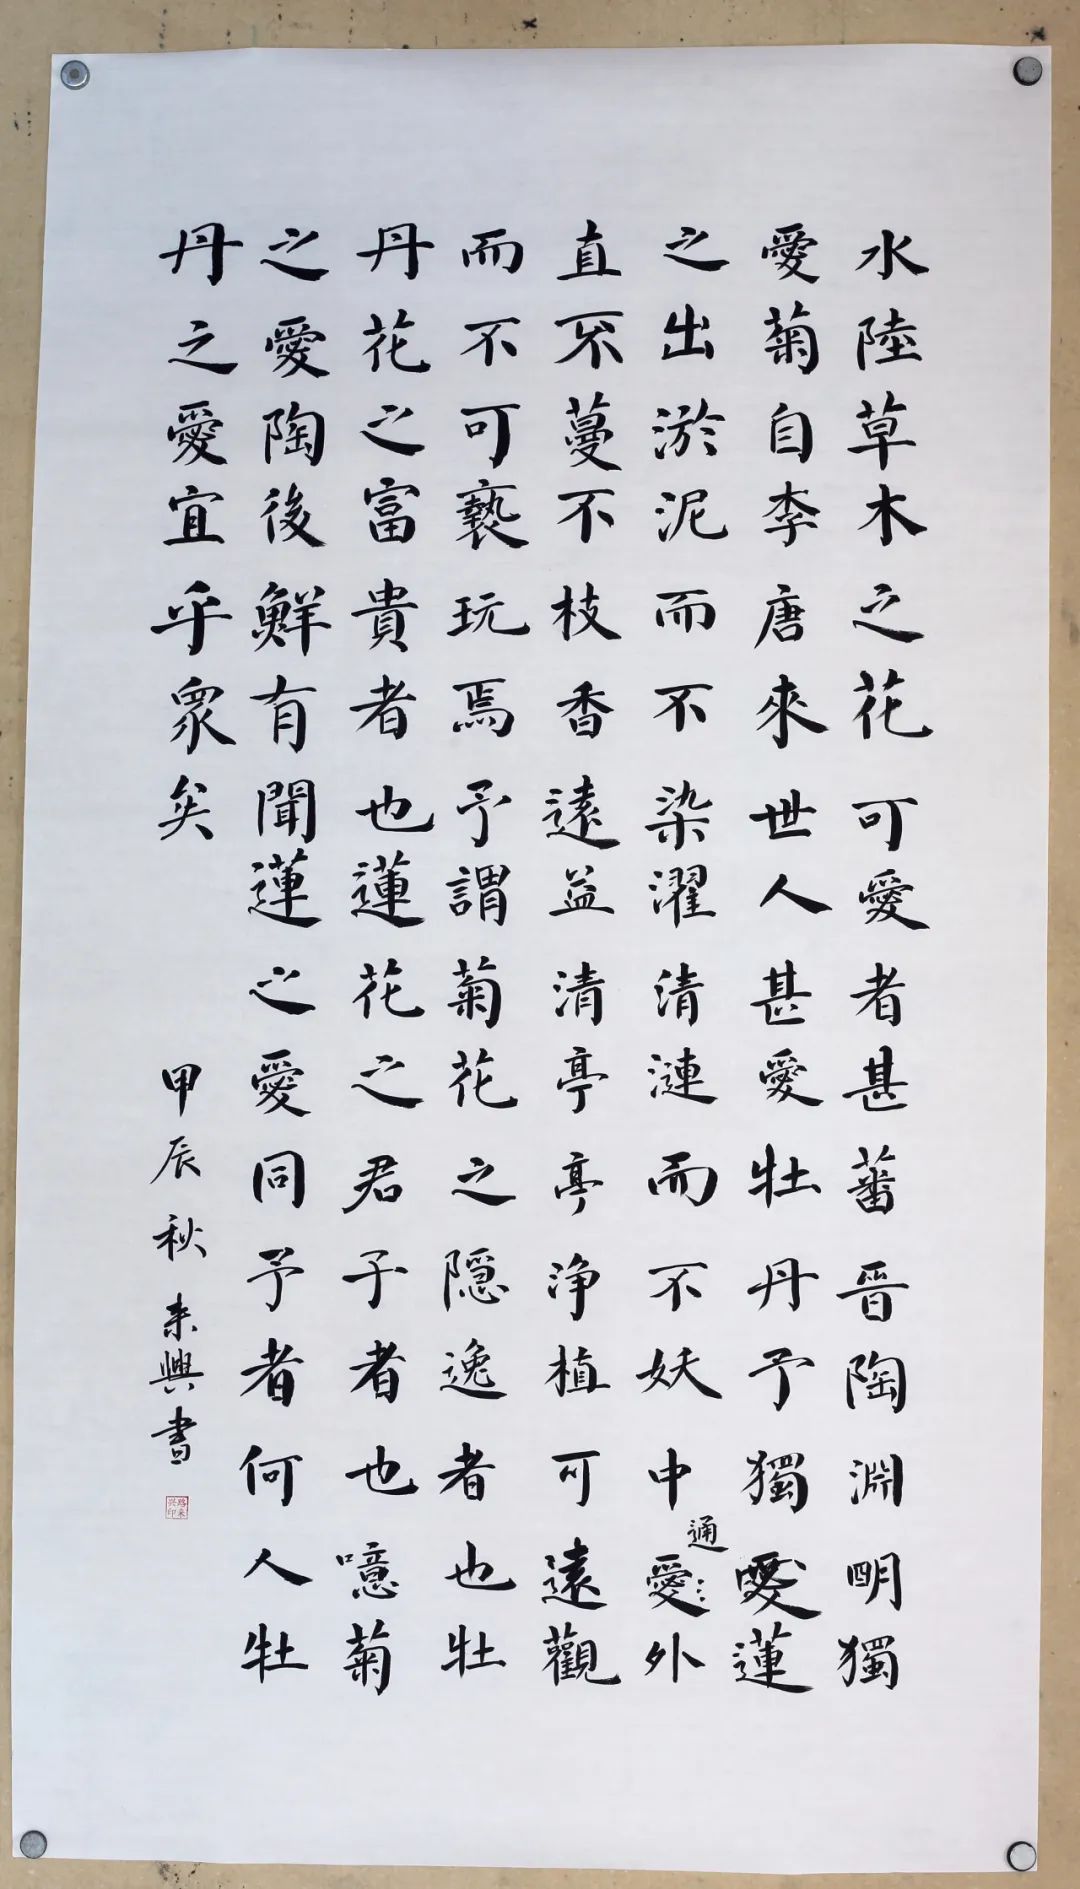 水陸草木之花可愛者甚蕃晉陶淵明獨
愛菊自李唐來世人甚愛牡丹予獨愛蓮
之出淤泥而不染濯清漣而不妖中愛外
通
直不蔓不枝香遠益清亭亭浄植可遠觀
而不可褻玩焉予謂菊花之隠逸者也牡
丹花之富貴者也蓮花之君子者也噫菊
之愛陶後鮮有聞蓮之愛同予者何人牡
丹之愛宜乎眾矣
甲辰秋 来興書
路来兴印